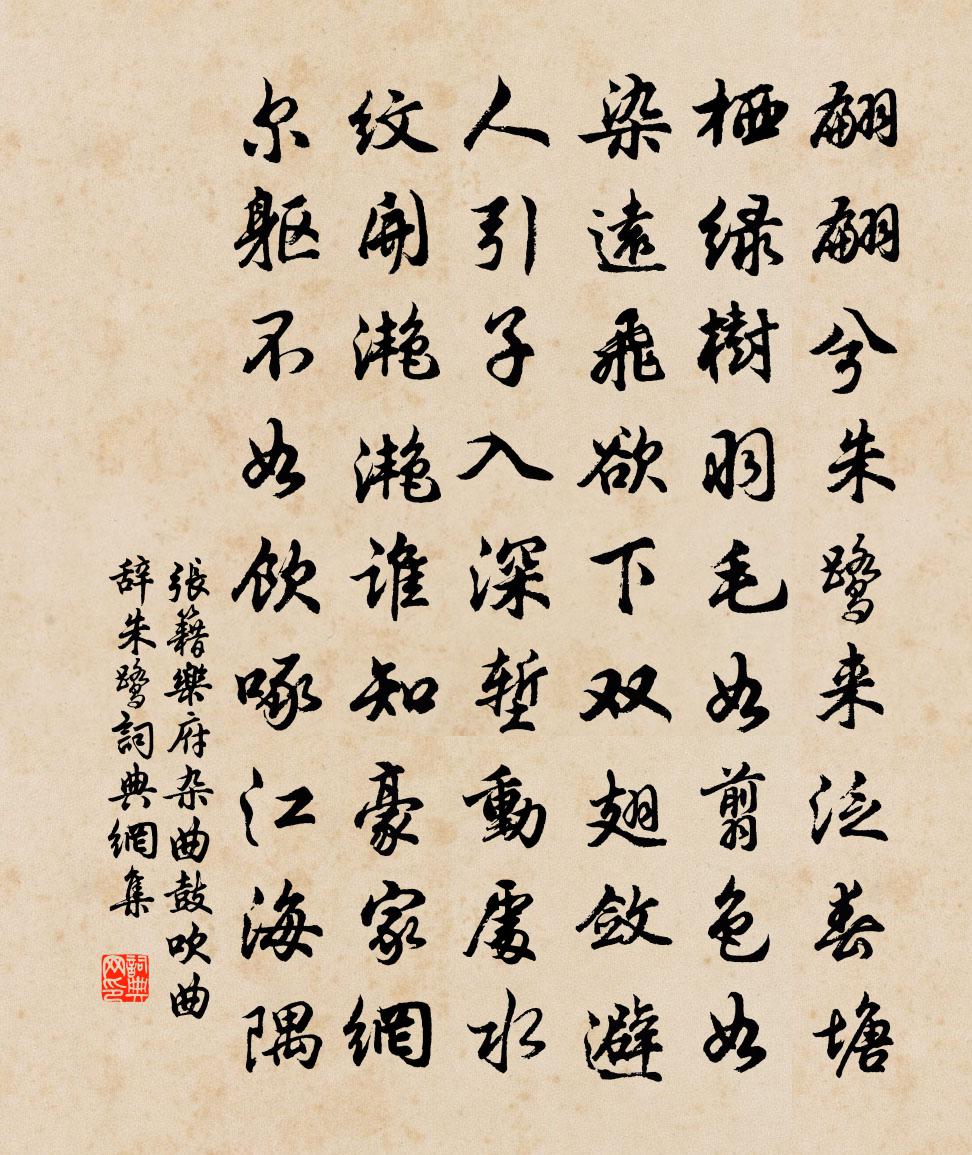 翩翩兮朱鹭来泛春塘
栖绿樹羽毛如剪色如
染遠飛欲下双翅斂避
人引子入深堑動處水
纹開滟滟谁知豪家網
尔躯不如饮啄江海隅
張籍樂府杂曲鼓吹曲
辞朱鹭詞典網集
詞典网印